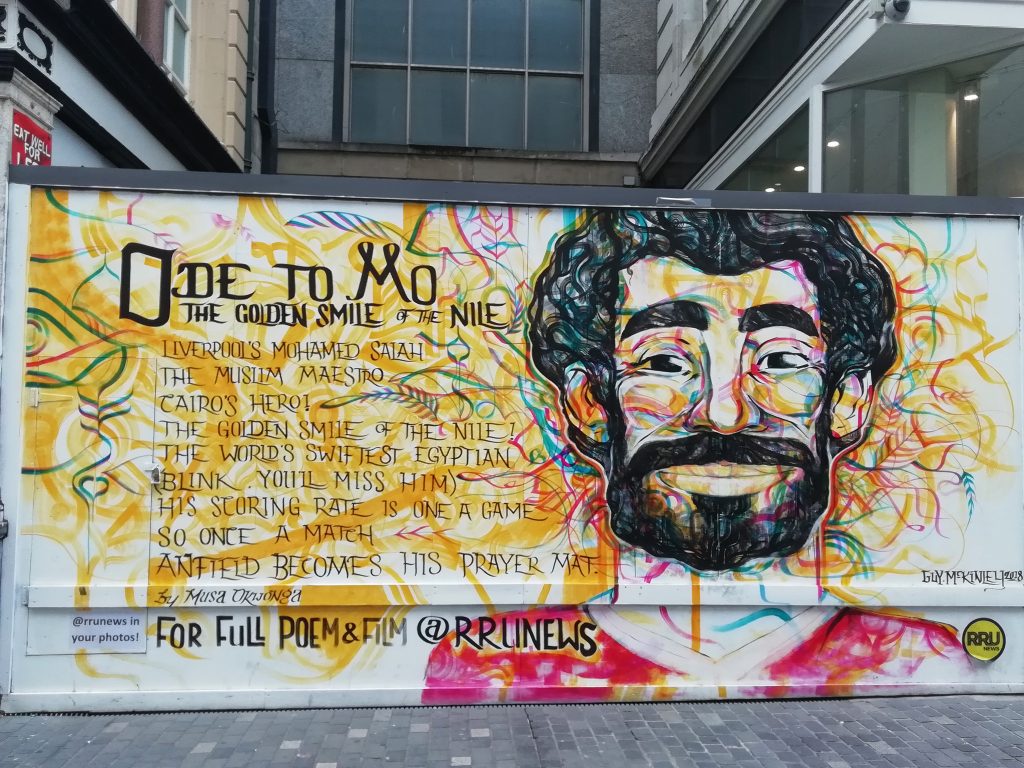 EAT WELL
FOR
ODE TO MO
THE GOLDEN SMILE OF THE NILE
LIVERPOOL'S MOHAMED SALAH
THE MUSLIM MAESTRO
CAIRO'S HERO!
THE GOLDEN SMILE OF THE NILE!
THE WORLD'S SWIFTEST EGYPTIAN
(BLINK YOU'LL MISS HIM)
HIS SCORING RATE IS ONE A GAME
SO ONCE A MATCH
ANFIELD BECOMES HIS PRAYER MAT.
by MUSA OKWONGA
GUY MCKINLEY 2018
@rrunews in
your photos!
FOR FULL POEM & FILM @RRUNEWS
RRU
NEWS